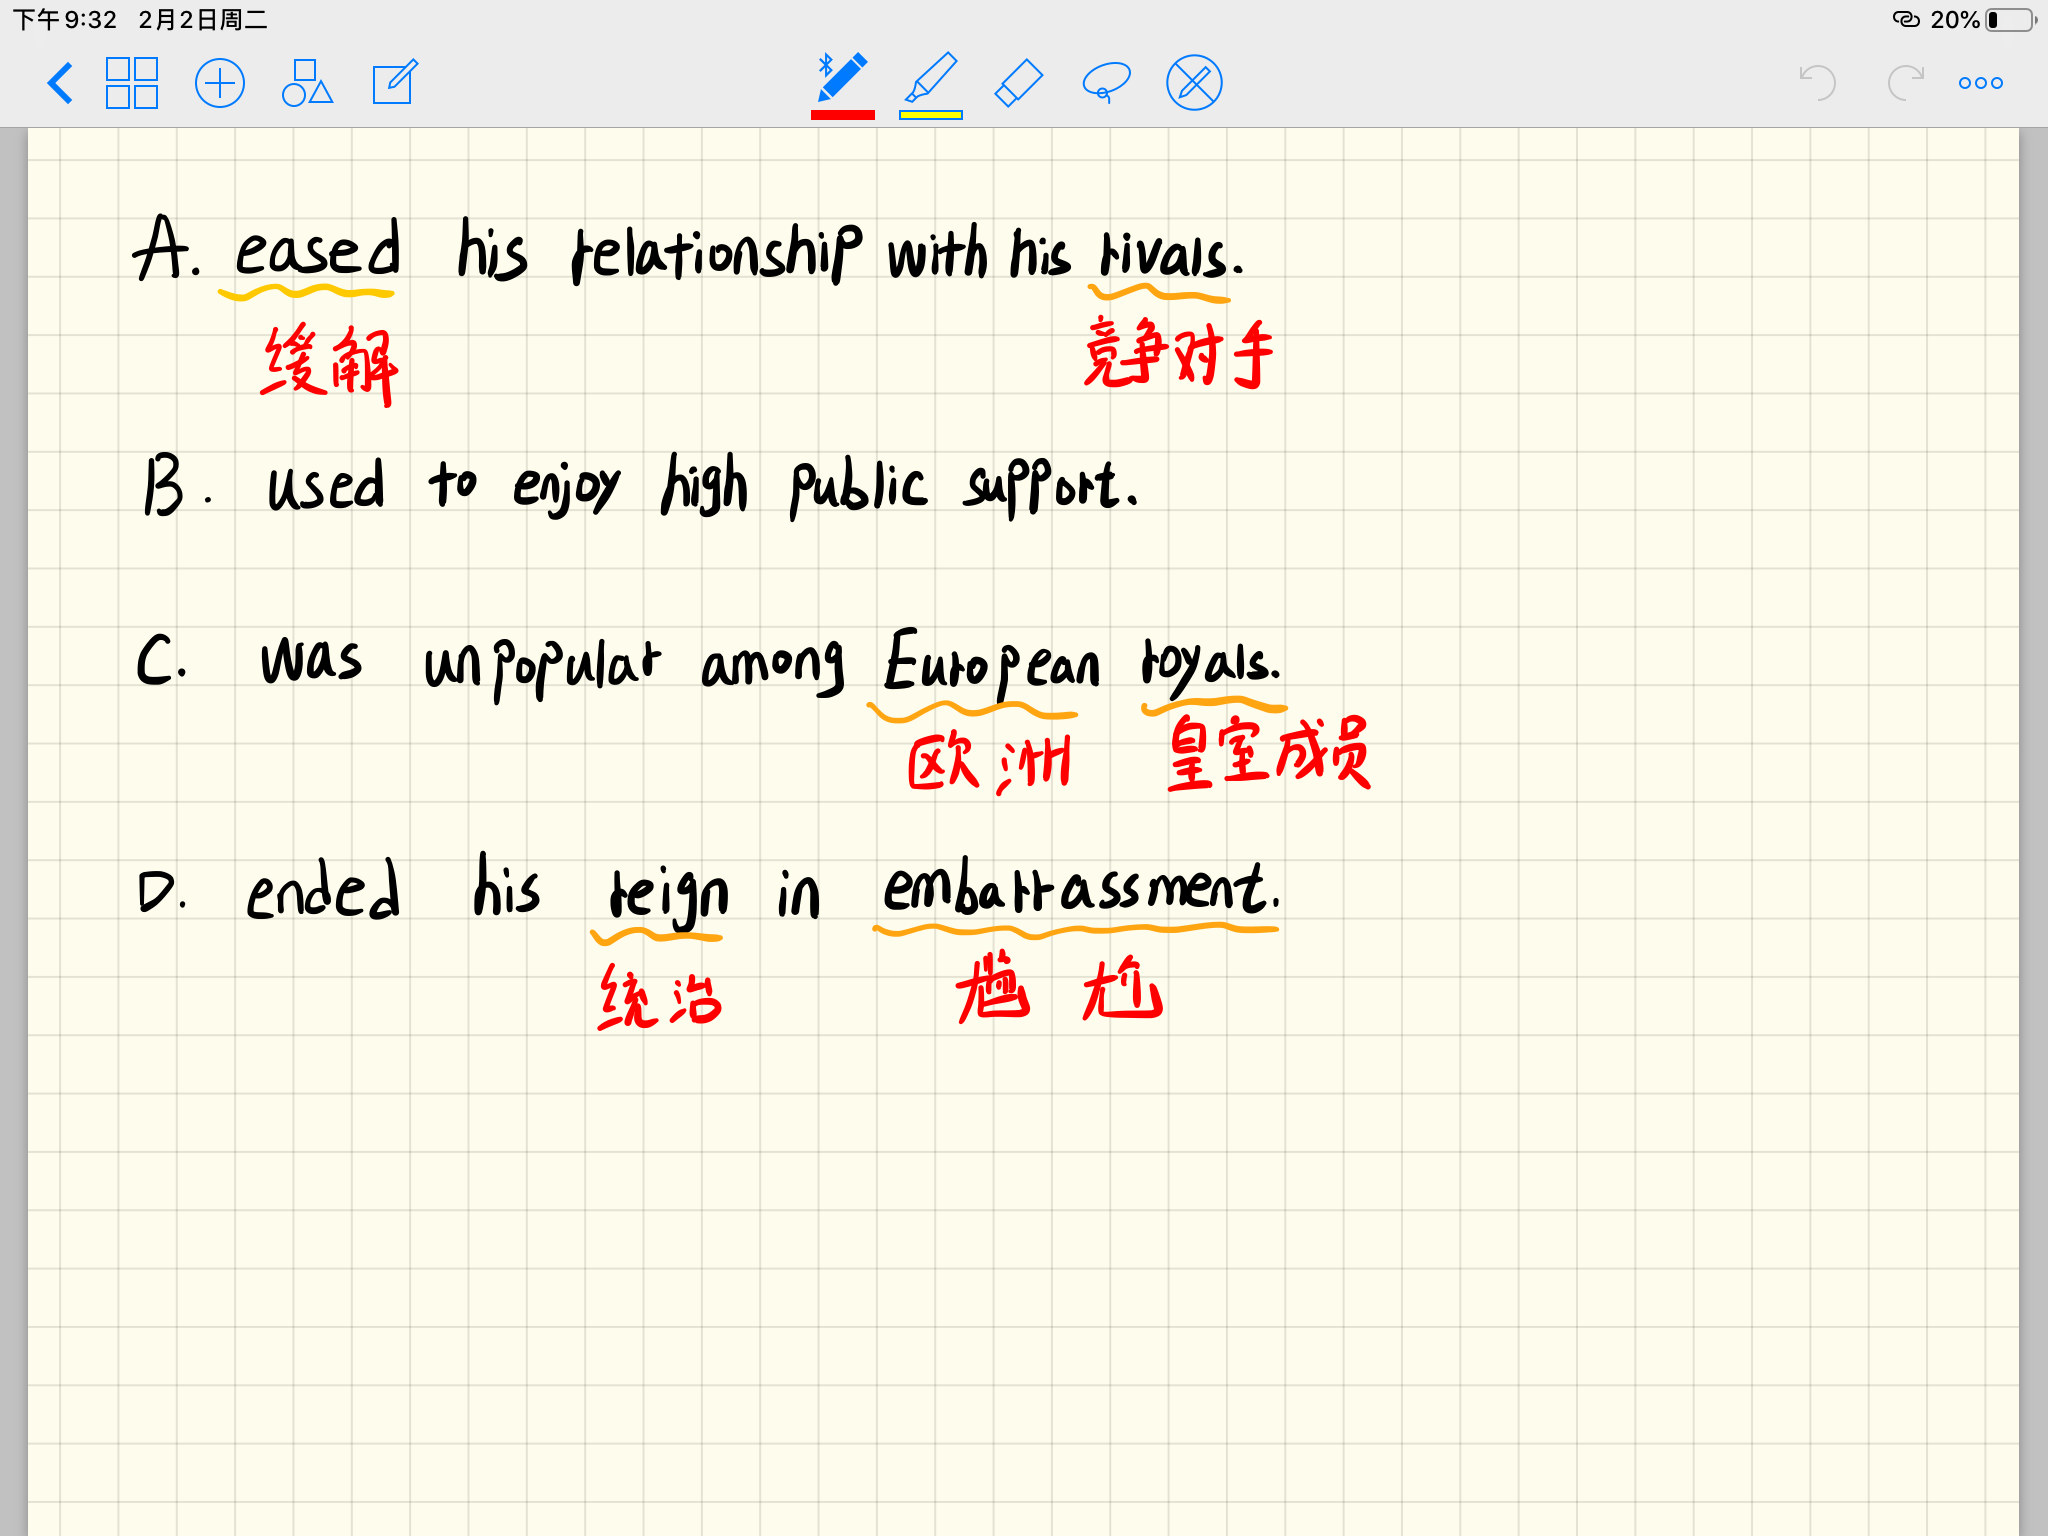 下午9:32 2月2日周二 20%
A. eased his relationship with his rivals.
缓解 竞争对手
B. used to enjoy high public support.
C. was unpopular among European royals.
欧洲 皇室成员
D. ended his reign in embarrassment.
统治 尴尬